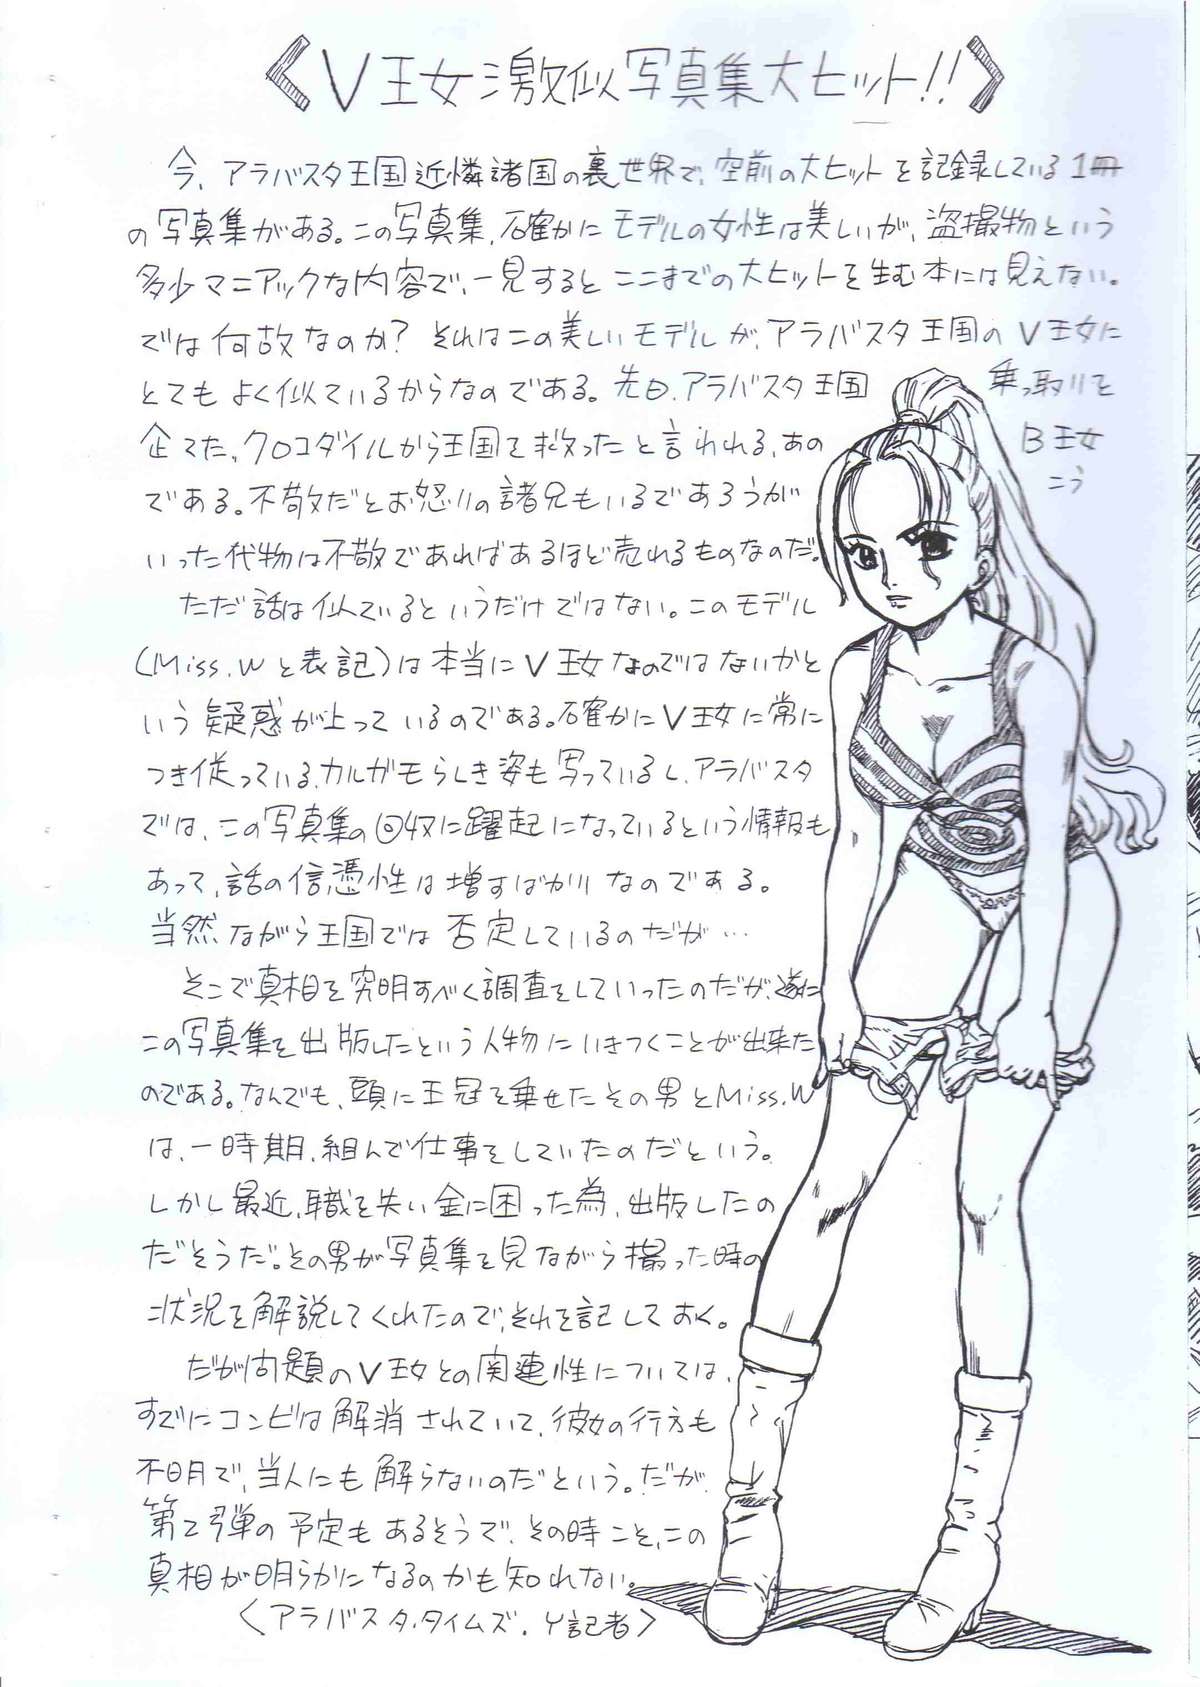 V王女激似写真集大ヒット!!
今、アラバスタ王国近憐諸国の裏世界で、空前の大ヒットを記録している1冊
の写真集がある。この写真集、確かにモデルの女性は美しいが、盗撮物という
多少マニアックな内容で、一見するとここまでの大ヒットを生む本には見えない。
では何故なのか? それはこの美しいモデルが、アラバスタ王国のV王女に
とてもよく似ているからなのである。先日、アラバスタ王国 乗っ取りを
企てた、クロコダイルから王国を救ったと言われる、あの B王女
である。不敬だとお怒りの諸兄もいるであろうが こう
いった代物は不敬であればあるほど売れるものなのだ。
ただ話は似ているというだけではない。このモデル
(Miss.Wと表記)は本当にV王女なのではないかと
いう疑惑が上っているのである。確かにV王女に常に
つき従っている、カルガモらしき姿も写っているし、アラバスタ
では、この写真集の回収に躍起になっているという情報も
あって、話の信憑性は増すばかりなのである。
当然ながら王国では否定しているのだが…
そこで真相を究明すべく調査をしていったのだが、遂に
この写真集を出版したという人物にいきつくことが出来た
のである。なんでも、頭に王冠を乗せたその男とMiss.W
は、一時期、組んで仕事をしていたのだという。
しかし最近、職を失い金に困った為、出版したの
だそうだ。その男が写真集を見ながら撮った時の
状況を解説してくれたので、それを記しておく。
だが問題のV王女との関連性については、
すでにコンビは解消されていて、彼女の行方も
不明で、当人にも解らないのだという。だが
第2弾の予定もあるそうで、その時こそ、この
真相が明らかになるのかも知れない。
〈アラバスタ.タイムズ.Y記者〉